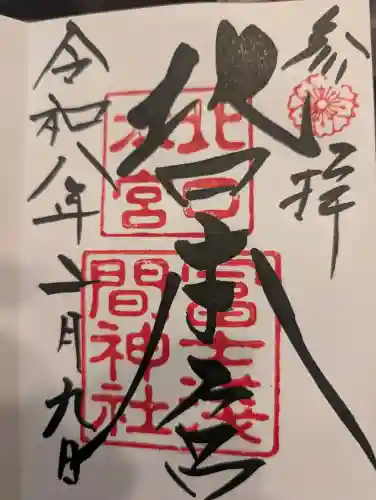 参拝
北口本宮
北口
本宮
冨士淺
間神社
令和八年二月九日